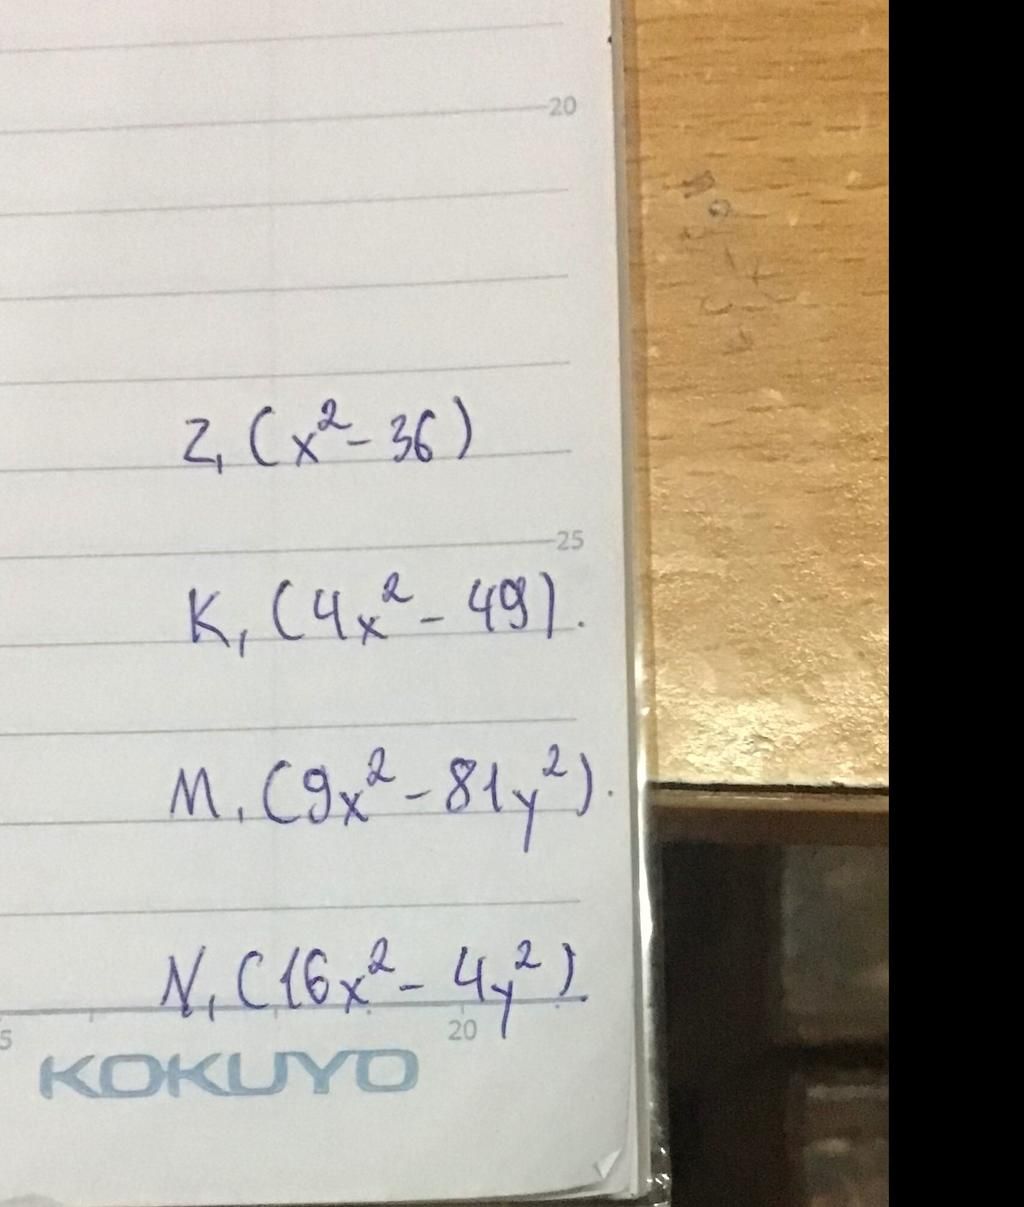 20
Z, (x² - 36)
25
K, (4x² - 49).
M, (9x² - 81y²).
N, (16x² - 4y²).
5 20
KOKUYO